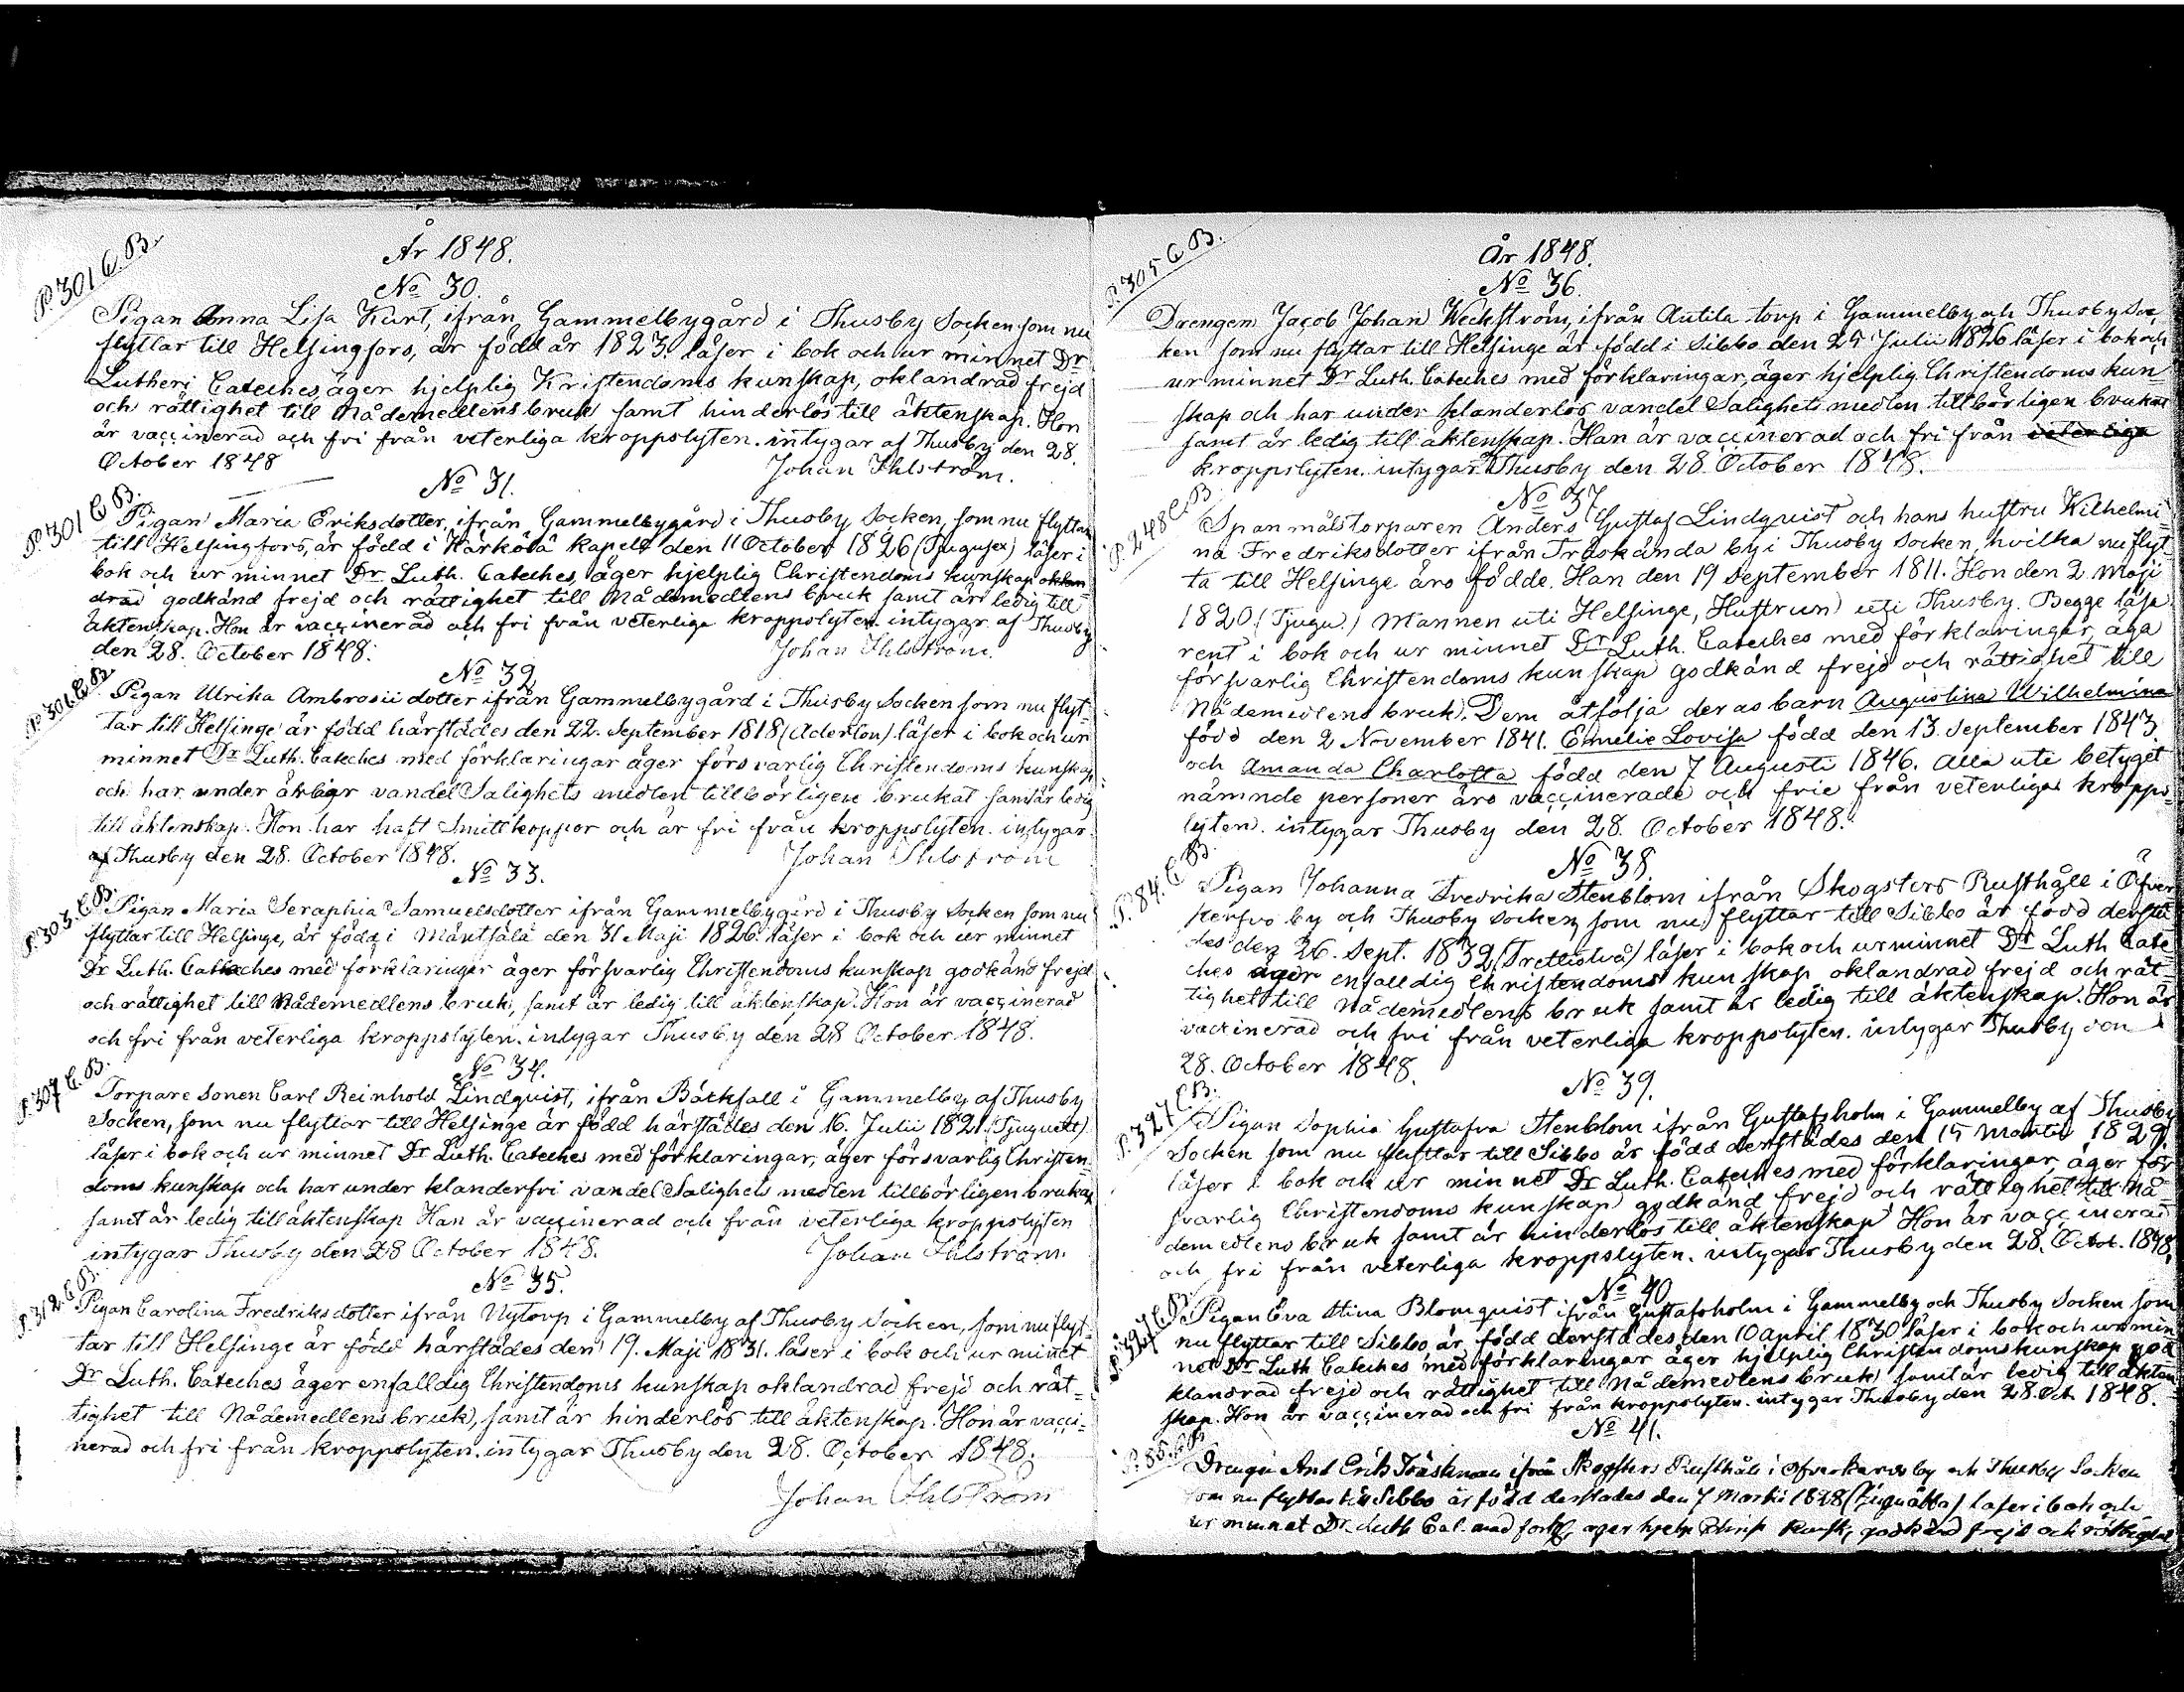 P. 301 C. B.
År 1848.
No 30.
Pigan Anna Lisa Kurt, ifrån Gammelbygård i Thusby Socken som nu
flyttar till Helsingfors, är född år 1823. läser i bok och ur minnet Dr
Lutheri Cateches, äger hjelplig Kristendoms kunskap, oklandrad frejd
och rättighet till Nådemedlens bruk samt hinderlös till äktenskap. Hon
är vaccinerad och fri från veterliga kroppslyten. intygar af Thusby den 28.
October 1848 Johan Ihlström.
No 31.
P. 301 C. B.
Pigan Maria Eriksdotter, ifrån Gammelbygård i Thusby Socken, som nu flyttar
till Helsingfors, är född i Kärkölä kapell den 11 October 1826 (Tjugusex) läser i
bok och ur minnet Dr Luth. Cateches, äger hjelplig Christendoms kunskap oklan-
drad godkänd frejd och rättighet till Nådemedlens bruk samt är ledig till
äktenskap. Hon är vaccinerad och fri från veterliga kroppslyten. intygar af Thusby
den 28. October 1848. Johan Ihlström.
No 32
P. 306 C. B.
Pigan Ulrika Ambrosii dotter ifrån Gammelbygård i Thusby Socken som nu flyt-
tar till Helsinge är född härstädes den 22. September 1818 (Aderton) läser i bok och ur
minnet Dr Luth. Cateches med förklaringar äger försvarlig Christendoms kunskap
och har under ärbar vandel Salighets medlen tillbörligen brukat samt är ledig
till äktenskap. Hon har haft Smittkoppor och är fri från kroppslyten. intygar
af Thusby den 28. October 1848. Johan Ihlström
No 33.
P. 303. C. B.
Pigan Maria Seraphia Samuelsdotter ifrån Gammelbygård i Thusby Socken som nu
flyttar till Helsinge, är född i Mäntsälä den 31 Maji 1826. läser i bok och ur minnet
Dr Luth. Cateches med förklaringar äger försvarlig Christendoms kunskap godkänd frejd
och rättighet till Nådemedlens bruk, samt är ledig till äktenskap. Hon är vaccinerad
och fri från veterliga kroppslyten. intygar Thusby den 28 October 1848.
No 34.
P. 307 C. B.
Torpare Sonen Carl Reinhold Lindquist, ifrån Bäckfall i Gammelby af Thusby
Socken, som nu flyttar till Helsinge är född härstädes den 16. Julii 1821. (Tjuguett)
läser i bok och ur minnet Dr Luth. Cateches med förklaringar, äger försvarlig Christen
doms kunskap och har under klanderfri vandel Salighets medlen tillbörligen brukat
samt är ledig till äktenskap Han är vaccinerad och från veterliga kroppslyten
intygar Thusby den 28 October 1848. Johan Ihlström.
No 35.
P. 312 C. B.
Pigan Carolina Fredriksdotter ifrån Nytorp i Gammelby af Thusby Socken, som nu flyt-
tar till Helsinge är född härstädes den 19. Maji 1831. läser i bok och ur minnet
Dr Luth. Cateches äger enfalldig Christendoms kunskap oklandrad frejd och rät-
tighet till Nådemedlens bruk, samt är hinderlös till äktenskap. Hon är vacci-
nerad och fri från kroppslyten. intygar Thusby den 28. October 1848.
Johan Ihlström
P. 305 C. B.
År 1848.
No 36.
Drengen Jacob Johan Weckström, ifrån Antila torp i Gammelby och Thusby Soc
ken som nu flyttar till Helsinge är född i Sibbo den 25 Julii 1826 läser i bok och
ur minnet Dr Luth. Cateches med förklaringar, äger hjelplig Christendoms kun-
skap och har under klanderlös vandel Salighets medlen tillbörligen brukat
samt är ledig till äktenskap. Han är vaccinerad och fri från veterliga
kroppslyten. intygar Thusby den 28. October 1848.
No 37
P. 248 C. B.
Spanmålstorparen Anders Gustaf Lindquist och hans hustru Wilhelmi-
na Fredriksdotter ifrån Träskända by i Thusby Socken, hvilka nu flyt-
ta till Helsinge äro födde. Han den 19 September 1811. Hon den 2. Maji
1820 (Tjugu) Mannen uti Helsinge, Hustrun uti Thusby. Begge läsa
rent i bok och ur minnet Dr Luth. Cateches med förklaringar, äga
försvarlig Christendoms kunskap godkänd frejd och rättighet till
Nådemedlens bruk. Dem åtfölja deras barn Augustina Wilhelmina
född den 2 November 1841. Emelie Lovisa född den 13. September 1843
och Amanda Charlotta född den 7 Augusti 1846. Alla uti betyget
nämnde personer äro vaccinerade och frie från veterliga kropps-
lyten. intygar Thusby den 28. October 1848.
No 38.
P. 84. C. B.
Pigan Johanna Fredrika Stenblom ifrån Skogsters Rusthåll i Öfver
kervo by och Thusby Socken som nu flyttar till Sibbo är född derstä-
des den 26. Sept. 1832 (Trettiotvå) läser i bok och ur minnet Dr Luth Cate-
ches äger enfalldig Christendoms kunskap oklandrad frejd och rät-
tighet till Nådemedlens bruk samt är ledig till äktenskap. Hon är
vaccinerad och fri från veterliga kroppslyten. intygar Thusby den
28. October 1848.
No 39.
P. 327 C. B.
Pigan Sophia Gustafva Stenblom ifrån Gustafsholm i Gammelby af Thusby
Socken som nu flyttar till Sibbo är född derstädes den 15 Martii 1829.
läser i bok och ur minnet Dr Luth. Cateches med förklaringar, äger för
svarlig Christendoms kunskap godkänd frejd och rättighet till Nå-
demedlens bruk samt är hinderlös till äktenskap Hon är vaccinerad
och fri från veterliga kroppslyten. intygar Thusby den 28. Octob. 1848.
No 40
P. 327 C. B.
Pigan Eva Stina Blomquist ifrån Gustafsholm i Gammelby och Thusby Socken som
nu flyttar till Sibbo, är född derstädes den 10 April 1830 läser i bok och ur min
net Dr Luth Cateches med förklaringar äger hjelplig Christendomskunskap
klandrad frejd och rättighet till Nådemedlens bruk samt är ledig till äkten
skap. Hon är vaccinerad och fri från kroppslyten. intygar Thusby den 28. Oct. 1848.
No 41.
P. 85. C. B.
Drengen And Erik Träskman ifrån Skogsters Rusthåll i Öfverkervo by och Thusby Socken
som nu flyttar till Sibbo är född derstädes den 7 Martii 1828 (Tjuguåtta) läser i bok och
ur minnet Dr Luth Cat. med förkl. äger hjelp Christ kunsk, godkänd frejd och rättighet